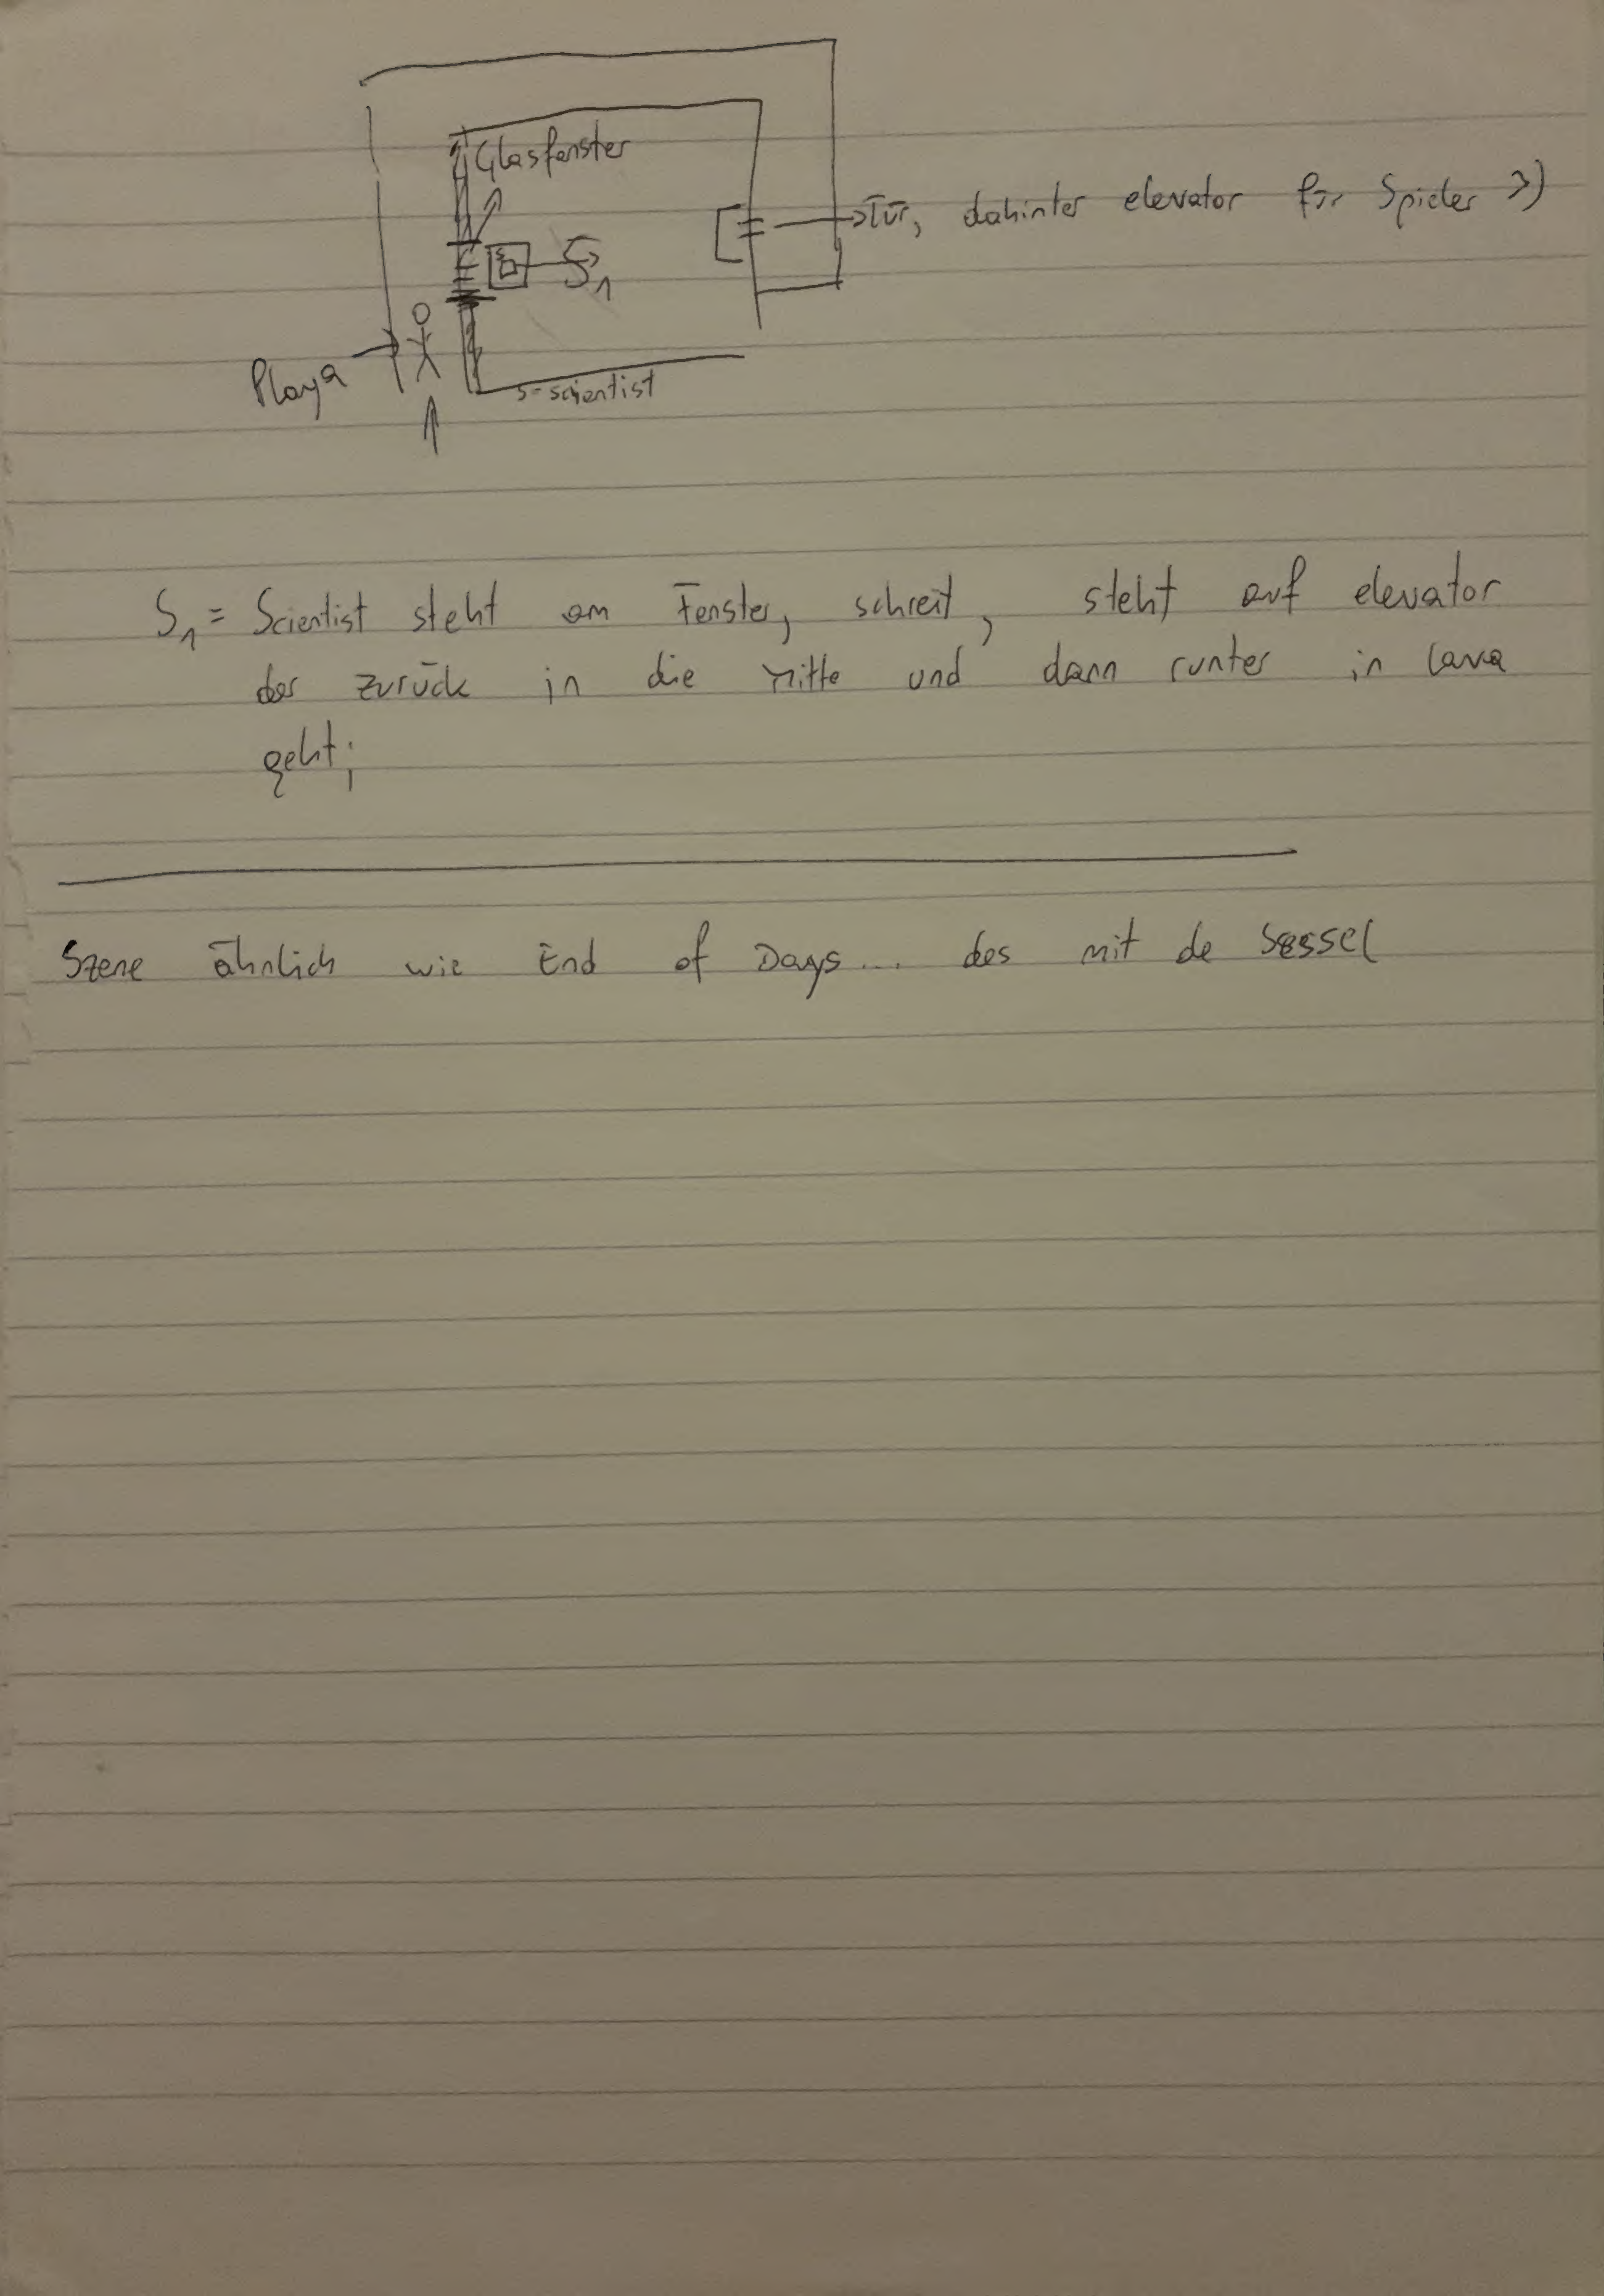 Glasfenster
Tür, dahinter elevator für Spieler >)
S1
Playa
s-scientist
S1 = Scientist steht am Fenster, schreit, steht auf elevator
der zurück in die mitte und dann runter in lava
geht;
Szene ähnlich wie End of Days... des mit de Sessel